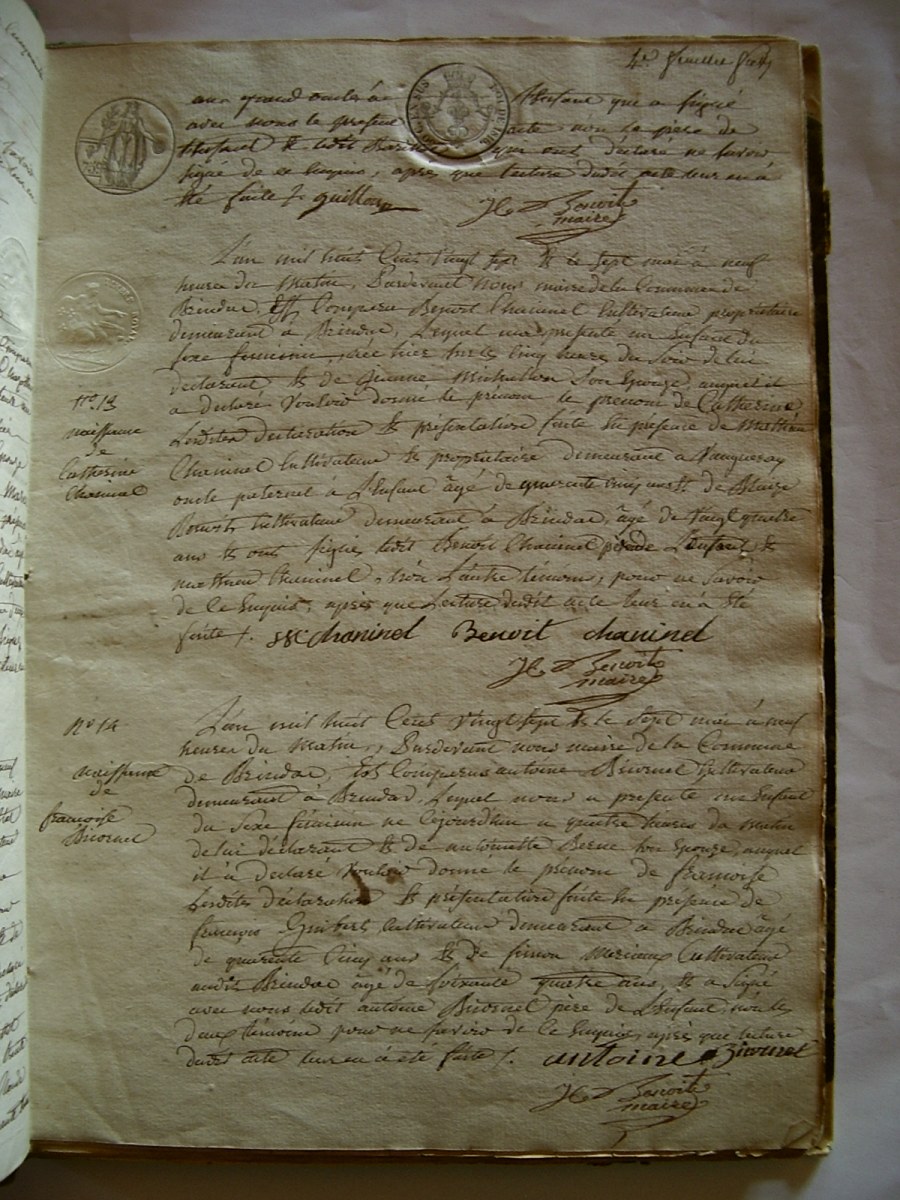 4e feuillet
aux grand oncle à l'enfant que a signé
avec nous le présent acte non le père de
l'enfant & ledit qui ont déclaré ne savoir
signé de ce enquis, après que lecture dudit acte leur en a
été faite /. guilloux
JC Benoit
maire
L'an mil huit Cens vingt sept & le sept mai à neuf
heures du Matin, Pardevant Nous maire de la Commune de
Brindas, Est Comparu Benoit Chaninel Cultivateur propriétaire
demeurant à Brindas, Lequel nous a présenté un Enfant du
sexe feminin, née hier sur les Cinq heures du soir de lui
declarant & de Jeanne Son Epouze, auquel il
a declaré Vouloir donné le prenom le prenom de Catherine
Lesdites declaration & présentation faite En présence de Mathieu
Chaninel Cultivateur & propriétaire demeurant à Vaugneray
oncle paternel à L'Enfant âgé de quarante cinq ans & de Blaise
Benoit Cultivateur demeurant à Brindas, âgé de Vingt quatre
ans & ont signés ledit Benoit Chaninel père de L'enfant &
mathieu Chaninel, non L'autre témoins, pour ne savoir
de Ce Enquis, après que Lecture dudit acte leur en à été
faite /. chaninel Benoit chaninel
JC Benoit
maire
No. 13
naissance
de
Catherine
Chaninel
L'an mil huit Cens Vingt sept & le sept mai à neuf
heures du Matin, Pardevant nous maire de la Commune
de Brindas, Est Comparus antoine Bivornel Cultivateur
demeurant à Brindas, Lequel nous a présenté un Enfant
du Sexe féminin né Cejourdhui a quatre heures du matin
de lui déclarant & de antoinette Berne son Epouze, auquel
il à declaré Vouloir donné le prénom de françoise
Lesdites déclaration & présentation faite En présence de
françois Cultivateur demeurant a Brindas âgé
de quarente Cinq ans & de Simon Cultivateur
audit Brindas âgé de soixante quatre ans, & a Signé
avec nous ledit antoine Bivornel père de L'Enfant, non les
deux témoins pour ne savoir de Ce Enquis, après que lecture
dudit acte leur en à été faite /. antoine Bivornel
JC Benoit
maire
No 14
naissance
de
françoise
Bivornel